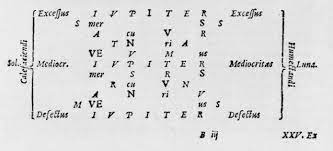 Exceſſus I V P I T E R Exceſſus
S mer S S
A cu V R
T N ri A
VE V M us
Sol. Calefaciendi Mediocr. I V P I T E R Mediocritas Humectandi Luna.
mer S R S
R cu V N
A N ri V
M VE us S
Defectus I V P I T E R Defectus
B iij XXV. Ex